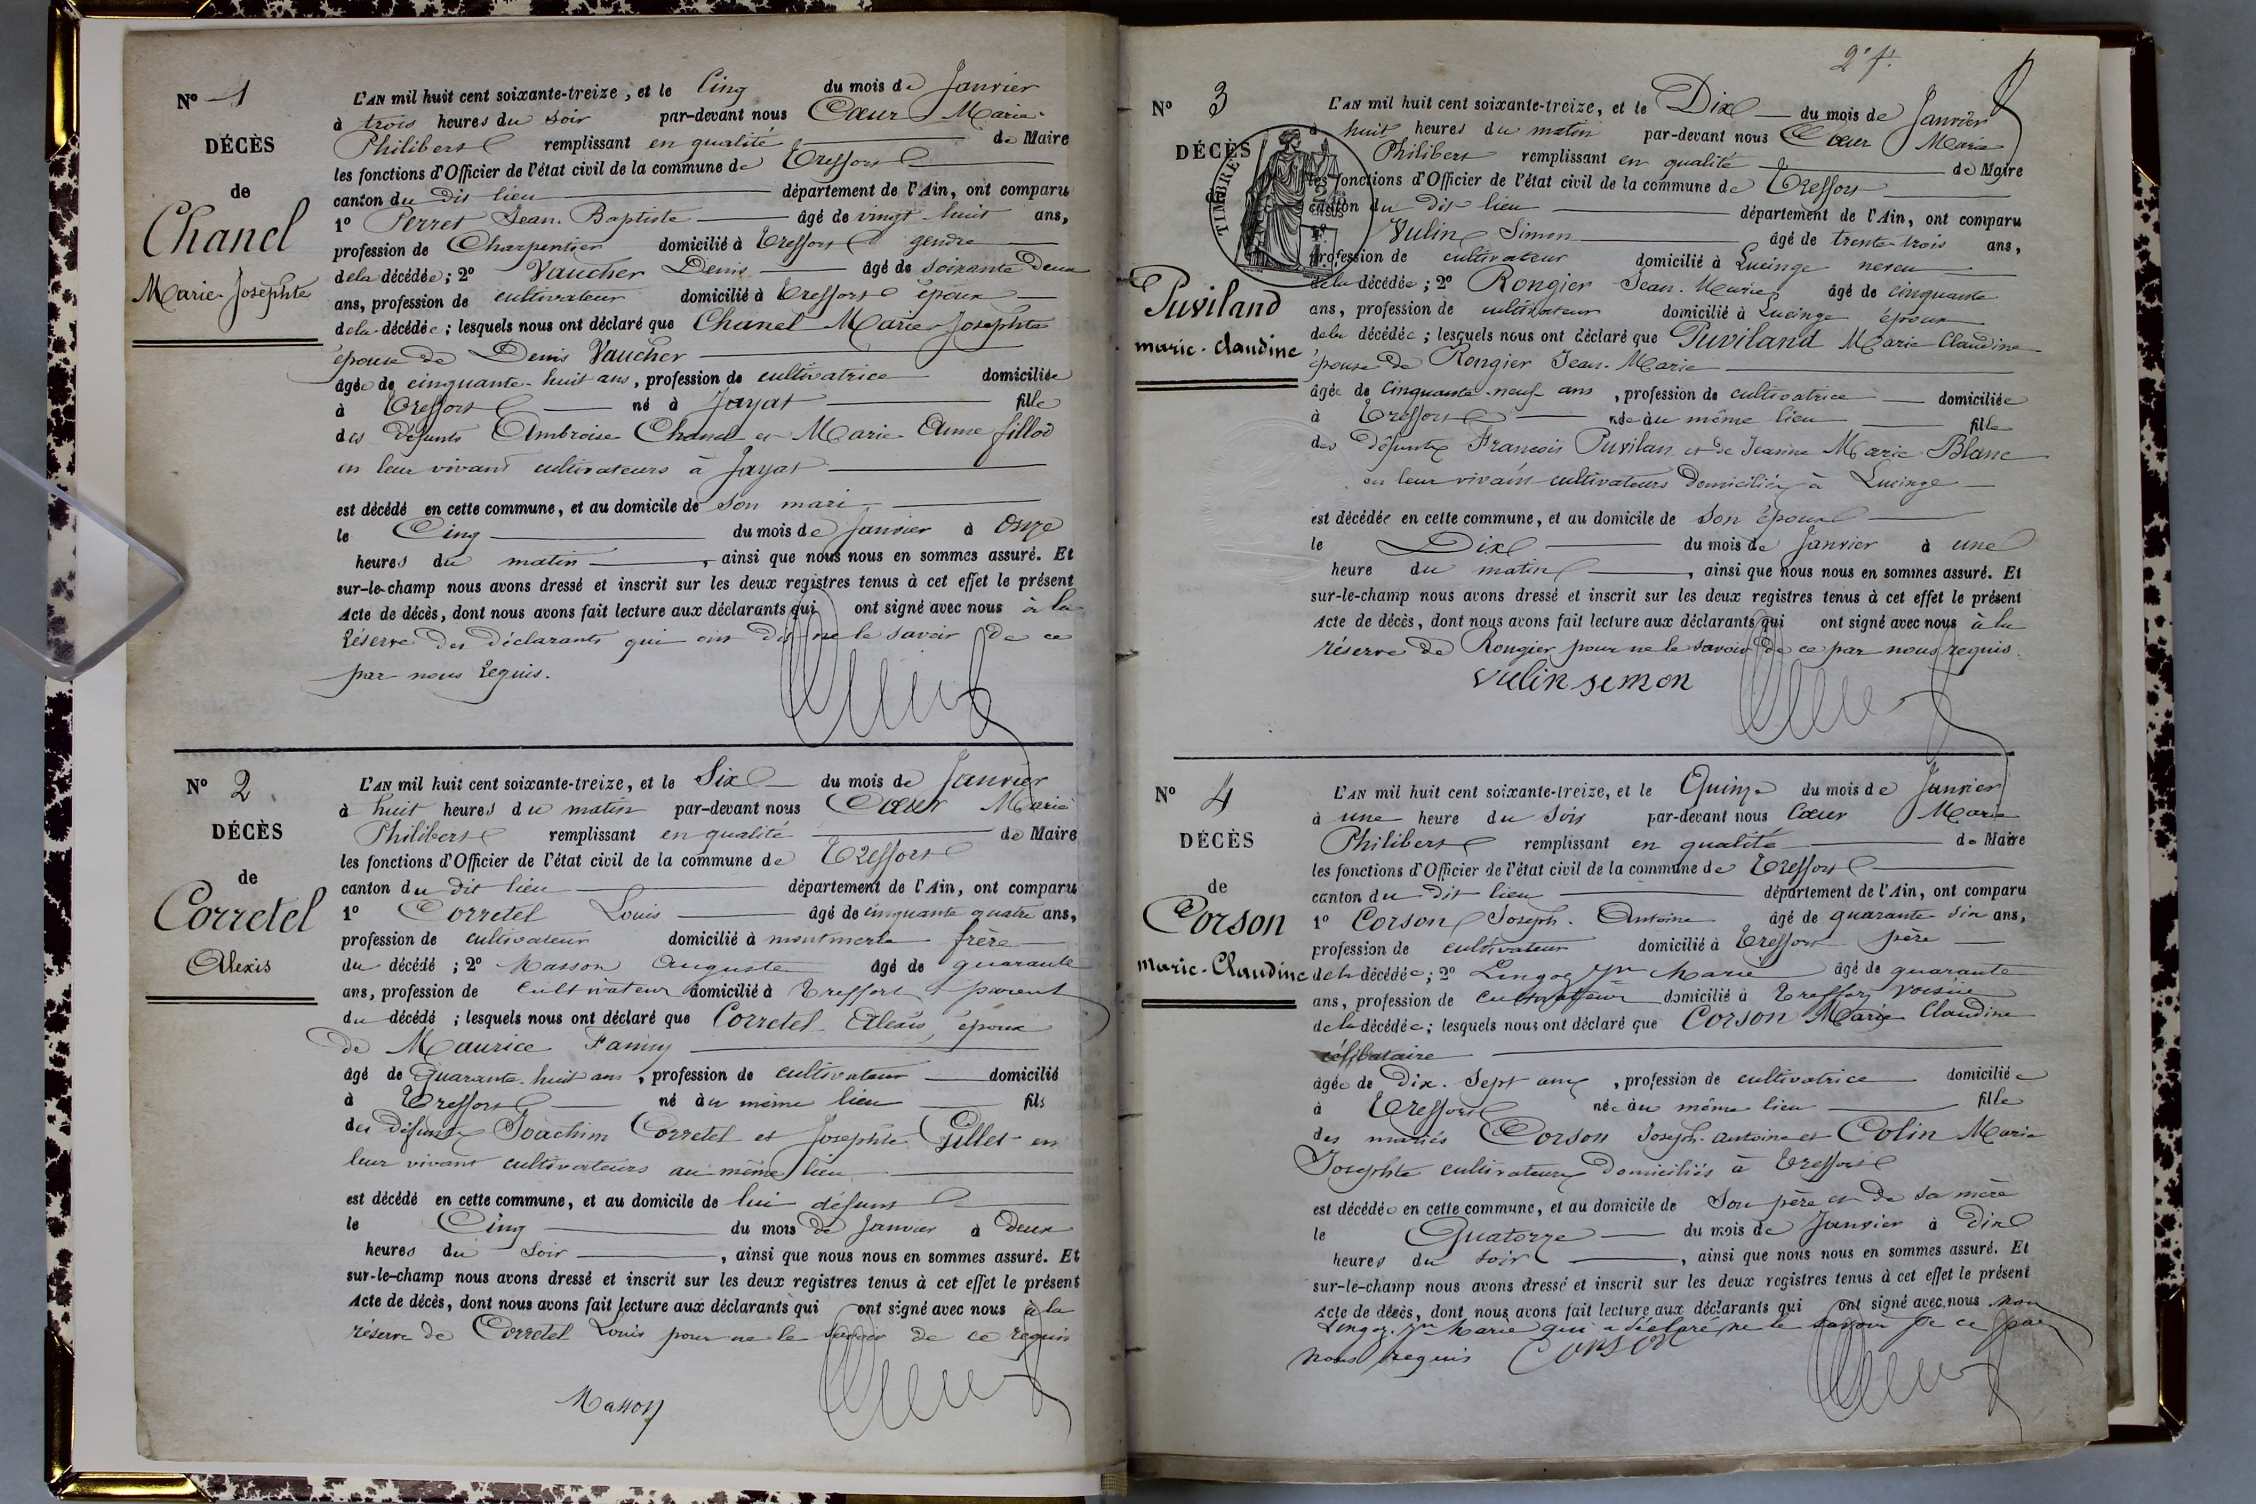 Nº 1
DÉCÈS
de
Chanel
Marie-Josephte
L'AN mil huit cent soixante-treize, et le Cinq du mois de Janvier
à trois heures du soir par-devant nous Cœur Marie
Philibert remplissant en qualité de Maire
les fonctions d'Officier de l'état civil de la commune de Treffort
canton du dit lieu département de l'Ain, ont comparu
1º Perret Jean-Baptiste âgé de vingt-huit ans,
profession de Charpentier domicilié à Treffort gendre
de la décédée; 2º Vaucher Denis âgé de soixante Deux
ans, profession de cultivateur domicilié à Treffort époux
de la décédée; lesquels nous ont déclaré que Chanel Marie-Josephte
épouse de Denis Vaucher
âgée de cinquante-huit ans, profession de cultivatrice domiciliée
à Treffort né à Jayat fille
des défunts Ambroise Chanel et Marie Anne fillod
en leur vivant cultivateurs à Jayat
est décédé en cette commune, et au domicile de son mari
le Cinq du mois de Janvier à Onze
heures du matin, ainsi que nous nous en sommes assuré. Et
sur-le-champ nous avons dressé et inscrit sur les deux registres tenus à cet effet le présent
Acte de décès, dont nous avons fait lecture aux déclarants qui ont signé avec nous à la
réserve des déclarants qui ont dit ne le savoir de ce
par nous requis.
Nº 2
DÉCÈS
de
Corretel
Alexis
L'AN mil huit cent soixante-treize, et le Six du mois de Janvier
à huit heures du matin par-devant nous Cœur Marie
Philibert remplissant en qualité de Maire
les fonctions d'Officier de l'état civil de la commune de Treffort
canton du dit lieu département de l'Ain, ont comparu
1º Corretel Louis âgé de cinquante quatre ans,
profession de cultivateur domicilié à montmerle frère
du décédé; 2º Masson Auguste âgé de quarante
ans, profession de cultivateur domicilié à Treffort parent
du décédé; lesquels nous ont déclaré que Corretel Alexis, époux
de Maurice Fanny
âgé de Quarante-huit ans, profession de cultivateur domicilié
à Treffort né au même lieu fils
des défunts Joachim Corretel et Josephte Gillet en
leur vivant cultivateurs au même lieu
est décédé en cette commune, et au domicile de lui défunt
le Cinq du mois de Janvier à Deux
heures du soir, ainsi que nous nous en sommes assuré. Et
sur-le-champ nous avons dressé et inscrit sur les deux registres tenus à cet effet le présent
Acte de décès, dont nous avons fait lecture aux déclarants qui ont signé avec nous à la
réserve de Corretel Louis pour ne le savoir de ce requis
Masson
2e f.
Nº 3
DÉCÈS
de
TIMBRE
Puviland
marie-claudine
L'AN mil huit cent soixante-treize, et le Dix du mois de Janvier
à huit heures du matin par-devant nous Cœur Marie
Philibert remplissant en qualité de Maire
les fonctions d'Officier de l'état civil de la commune de Treffort
canton du dit lieu département de l'Ain, ont comparu
1º Vulin Simon âgé de trente-trois ans,
profession de cultivateur domicilié à Lucinge neveu
de la décédée; 2º Rongier Jean-Marie âgé de cinquante
ans, profession de cultivateur domicilié à Lucinge époux
de la décédée; lesquels nous ont déclaré que Puviland Marie Claudine
épouse de Rongier Jean-Marie
âgée de Cinquante-neuf ans, profession de cultivatrice domiciliée
à Treffort née au même lieu fille
des défunts Francois Puvilan et de Jeanne Marie Blanc
en leur vivant cultivateurs Domiciliés à Lucinge
est décédée en cette commune, et au domicile de son époux
le Dix du mois de Janvier à une
heure du matin, ainsi que nous nous en sommes assuré. Et
sur-le-champ nous avons dressé et inscrit sur les deux registres tenus à cet effet le présent
Acte de décès, dont nous avons fait lecture aux déclarants qui ont signé avec nous à la
réserve de Rongier pour ne le savoir de ce par nous requis.
vulin simon
Nº 4
DÉCÈS
de
Corson
marie-Claudine
L'AN mil huit cent soixante-treize, et le Quinze du mois de Janvier
à une heure du Soir par-devant nous Cœur Marie
Philibert remplissant en qualité de Maire
les fonctions d'Officier de l'état civil de la commune de Treffort
canton du dit lieu département de l'Ain, ont comparu
1º Corson Joseph-Antoine âgé de quarante-six ans,
profession de cultivateur domicilié à Treffort père
de la décédée; 2º Marie âgé de quarante
ans, profession de cultivateur domicilié à Treffort voisin
de la décédée; lesquels nous ont déclaré que Corson Marie Claudine
célibataire
âgée de Dix-Sept ans, profession de cultivatrice domiciliée
à Treffort née au même lieu fille
des mariés Corson Joseph-antoine et Colin Marie
Josephte cultivateurs Domiciliés à Treffort
est décédée en cette commune, et au domicile de Son père et De sa mère
le Quatorze du mois de Janvier à Dix
heures du soir, ainsi que nous nous en sommes assuré. Et
sur-le-champ nous avons dressé et inscrit sur les deux registres tenus à cet effet le présent
Acte de décès, dont nous avons fait lecture aux déclarants qui ont signé avec nous non
Marie qui a déclaré ne le savoir de ce par
nous requis Corson